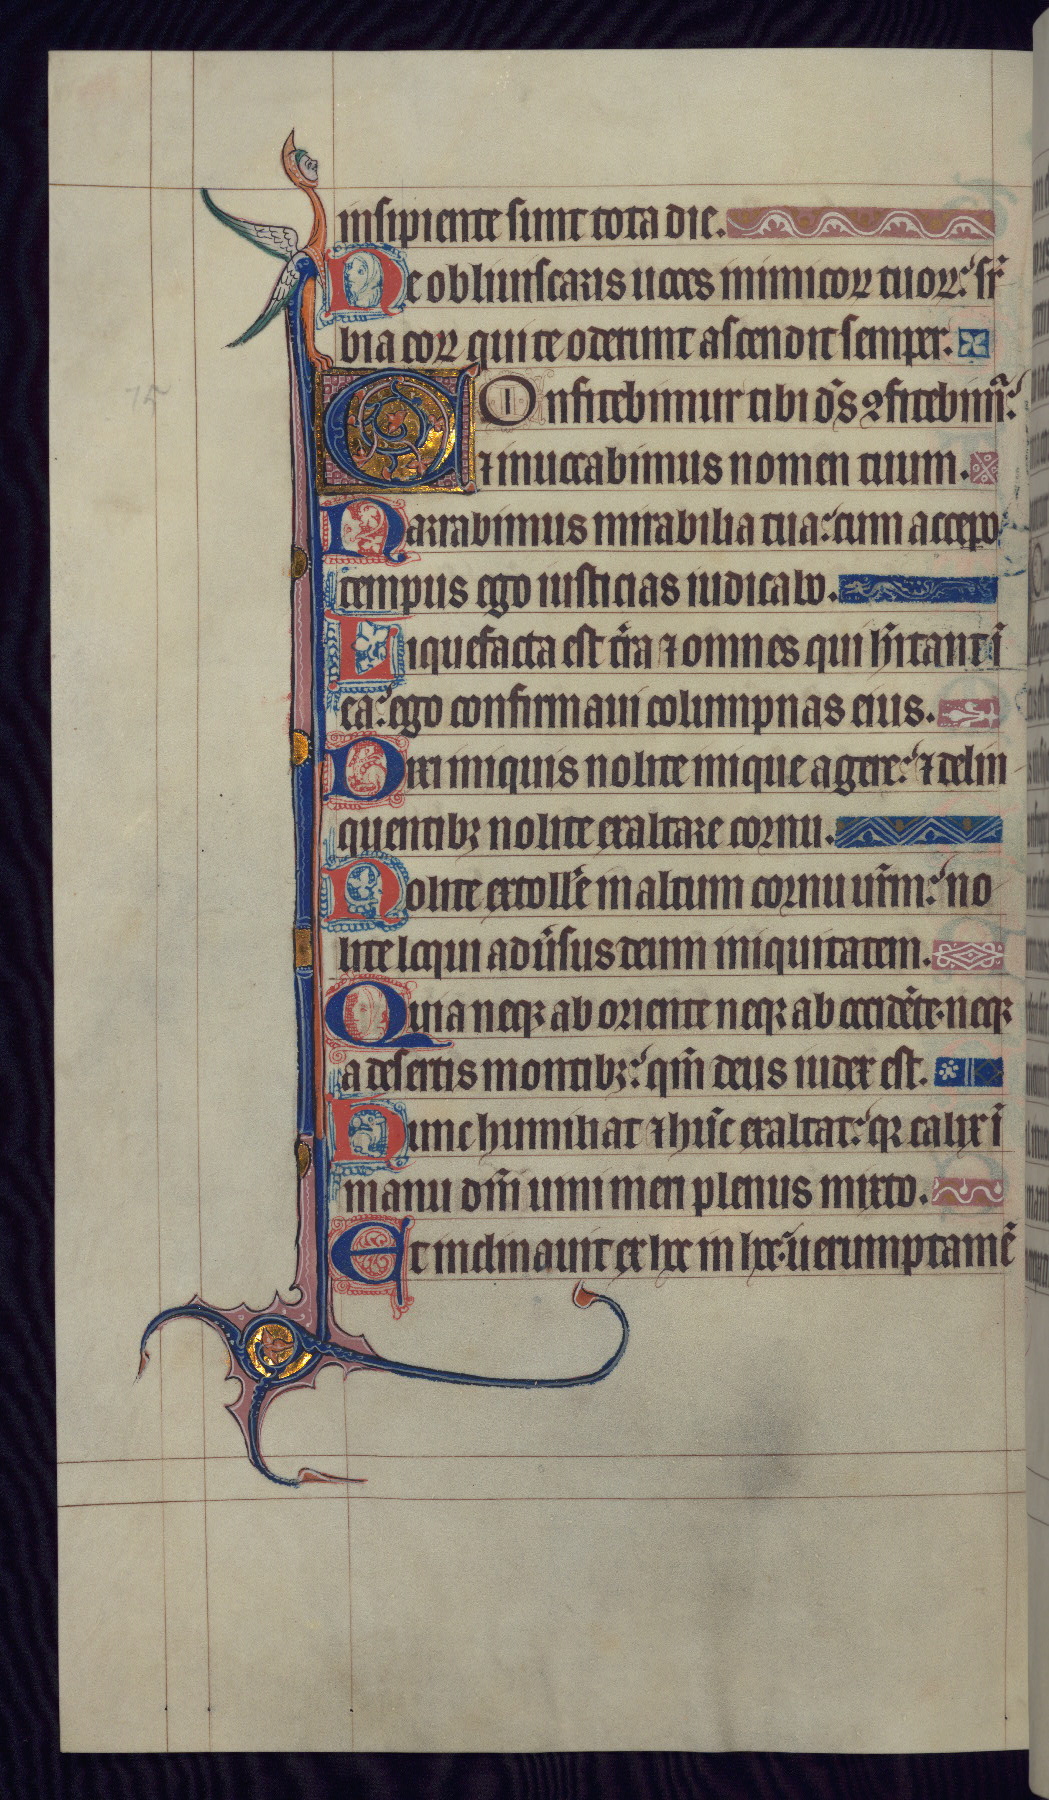 insipiente sunt tota die.
Ne obliuiscaris uoces inimicoꝝ tuoꝝ: suꝑ
bia eoꝝ qui te oderunt ascendit semper.
COnfitebimur tibi ds̄ ꝯfitebim̄:
⁊ inuocabimus nomen tuum.
Narrabimus mirabilia tua: cum accepo
tempus ego iusticias iudicabo.
Liquefacta est tr̄a ⁊ omnes qui hītant ī
ea: ego confirmaui columpnas eius.
Dixi iniquis nolite inique agere: ⁊ delin
quentibꝫ nolite exaltare cornu.
Nolite extolle in altum cornu ur̄m: no
lite loqui adūsus deum iniquitatem.
Quia neqꝫ ab oriente neqꝫ ab occidēte neqꝫ
a desertis montibꝫ: qm̄ deus iudex est.
Hunc humiliat ⁊ hūc exaltat: qꝛ calix ī
manu dn̄i uini meri plenus mixto.
Et inclinauit ex hoc in hoc: uerumptamē
75